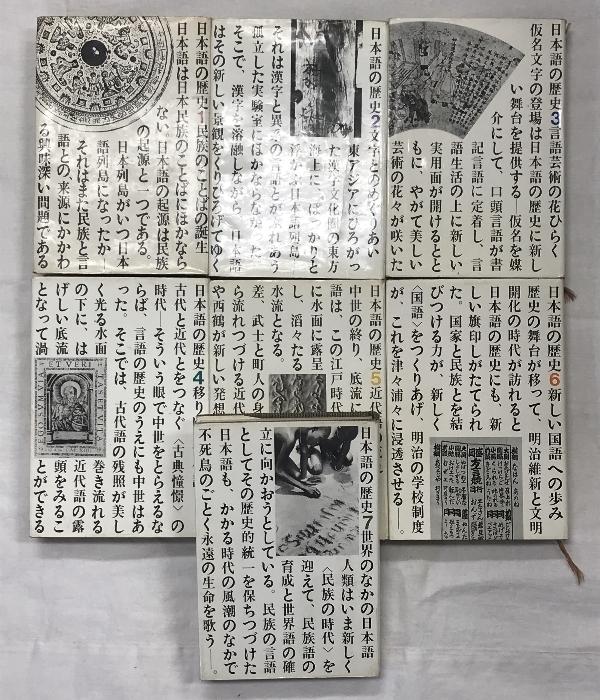 日本語の歴史1民族のことばの誕生
日本語は日本民族のことばにほかなら
ない。日本語の起源は民族
の起源と一つである。
日本列島がいつ日本
語列島になったか―
それはまた民族と言
語との、来源にかかわ
る興味深い問題である
日本語の歴史2文字とのめぐりあい
東アジアにひろがっ
た漢字文化圏の東方
海上に、ぽっかりと
浮かぶ日本語列島
それは漢字と異質の言語とが、であう
孤立した実験室にほかならなかった
そこで、漢字を溶融しながら、日本語
はその新しい景観をくりひろげてゆく
日本語の歴史3言語芸術の花ひらく
仮名文字の登場は日本語の歴史に新し
い舞台を提供する―仮名を媒
介にして、口頭言語が書
記言語に定着し、言
語生活の上に新しい
実用面が開けるとと
もに、やがて美しい
芸術の花々が咲いた
日本語の歴史4移り
古代と近代とをつなぐ〈古典憧憬〉の
時代―そういう眼で中世をとらえるな
らば、言語の歴史のうえにも中世はあ
った。そこでは、古代語の残照が美し
く光る水面
の下に、は
げしい底流
となって渦
巻き流れる
近代語の露
頭をみるこ
とができる
日本語の歴史5近代
中世の終り、底流に
語は、この江戸時代
に水面に露呈
し、滔々たる
水流となる。
差、武士と町人の身
ら流れつづける近代
や西鶴が新しい発想
日本語の歴史6新しい国語への歩み
歴史の舞台が移って、明治維新と文明
開化の時代が訪れると
日本語の歴史にも、新
しい旗印しがたてられ
た。国家と民族とを結
びつける力が、新しく
〈国語〉をつくりあげ、明治の学校制度
が、これを津々浦々に浸透させる―。
日本語の歴史7世界のなかの日本語
人類はいま新しく
〈民族の時代〉を
迎えて、民族語の
育成と世界語の確
立に向かおうとしている。民族の言語
としてその歴史的統一を保ちつづけた
日本語も、かかる時代の風潮のなかで
不死鳥のごとく永遠の生命を歌う―。